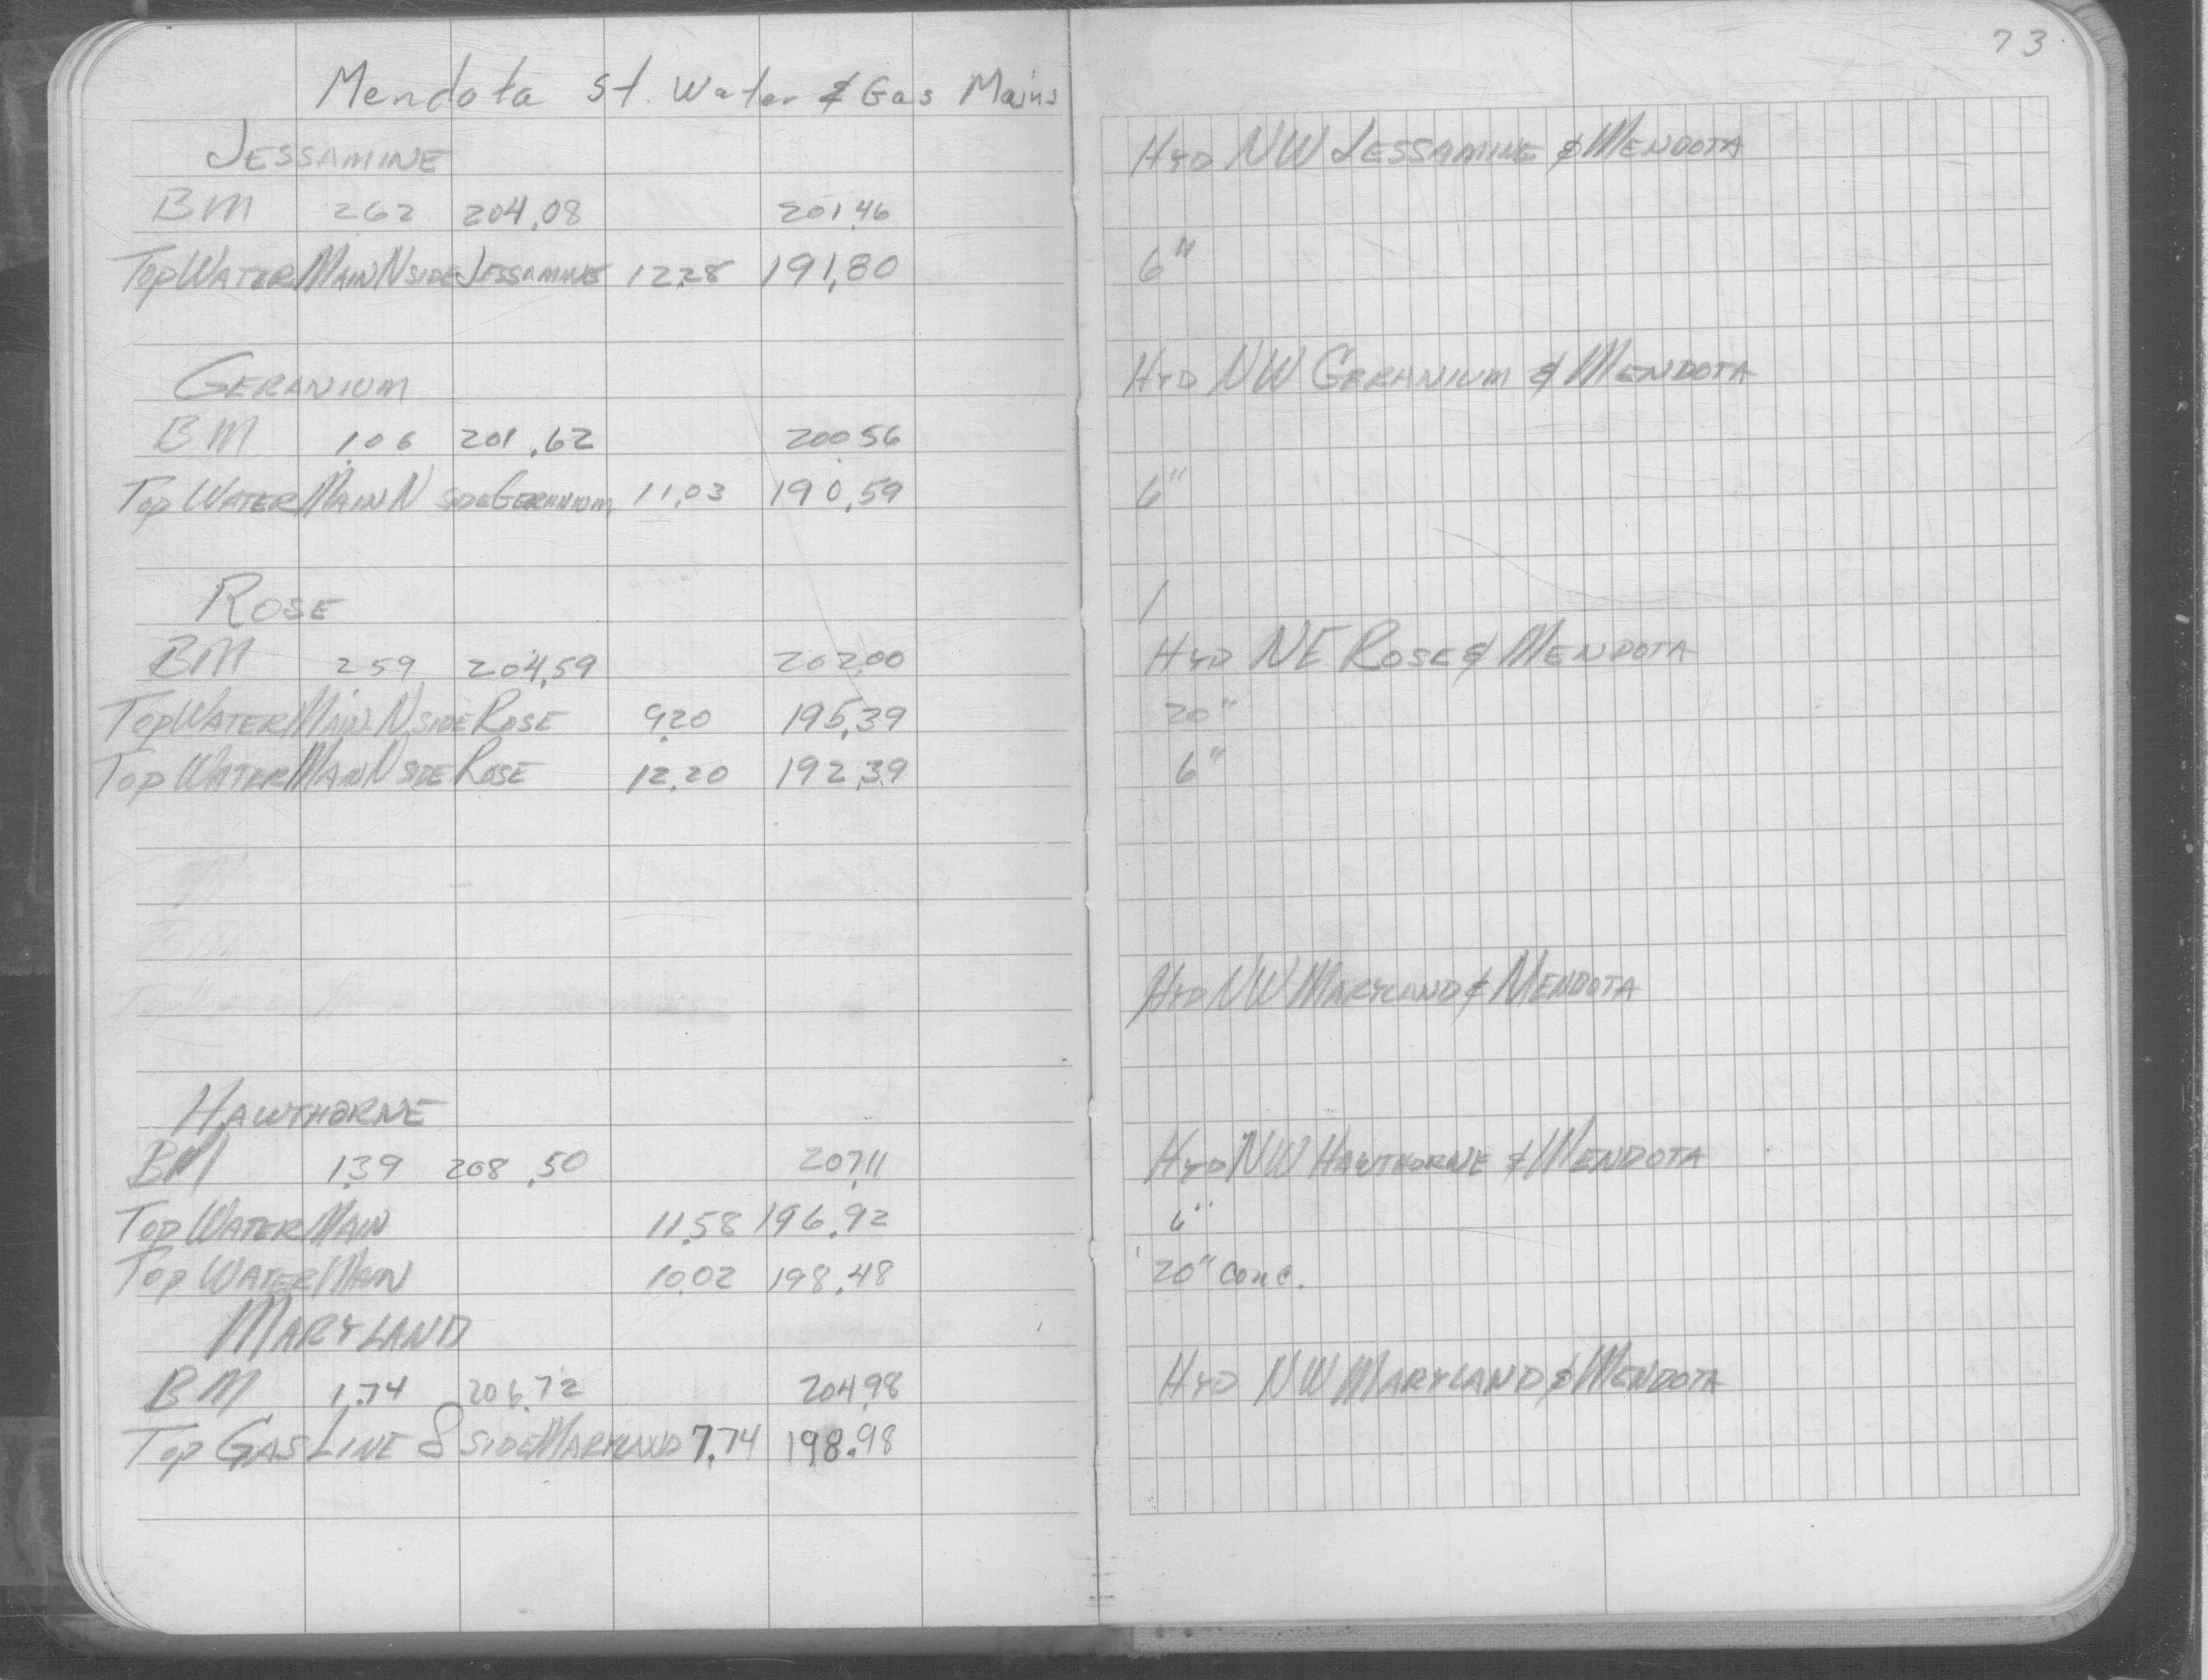 73
Mendota St. Water & Gas Mains
JESSAMINE
BM 2.62 204.08 201.46
TOP WATER MAIN N SIDE JESSAMINE 12.28 191.80
GERANIUM
BM 1.06 201.62 200.56
TOP WATER MAIN N SIDE GERANIUM 11.03 190.59
ROSE
BM 2.59 204.59 202.00
TOP WATER MAIN N SIDE ROSE 9.20 195.39
TOP WATER MAIN N SIDE ROSE 12.20 192.39
HAWTHORNE
BM 1.39 208.50 207.11
TOP WATER MAIN 11.58 196.92
TOP WATER MAIN 10.02 198.48
MARYLAND
BM 1.74 206.72 204.98
TOP GAS LINE S SIDE MARYLAND 7.74 198.98
HYD NW JESSAMINE & MENDOTA
6"
HYD NW GERANIUM & MENDOTA
6"
HYD NE ROSE & MENDOTA
20"
6"
HYD NW MARYLAND & MENDOTA
HYD NW HAWTHORNE & MENDOTA
6"
20" conc.
HYD NW MARYLAND & MENDOTA